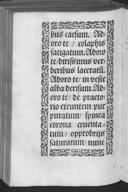 bus cæsum. Ad
oro te / colaphis
fatigatum. Adoro
te derisum: vestr
beribus laceratū.
Adoro te / in veste
alba derisum. Ad
oro te / de preto
rio exeuntem pur
puratum / spinea
corona cruenta-
tum / opprobrijs
saturatum / nunc